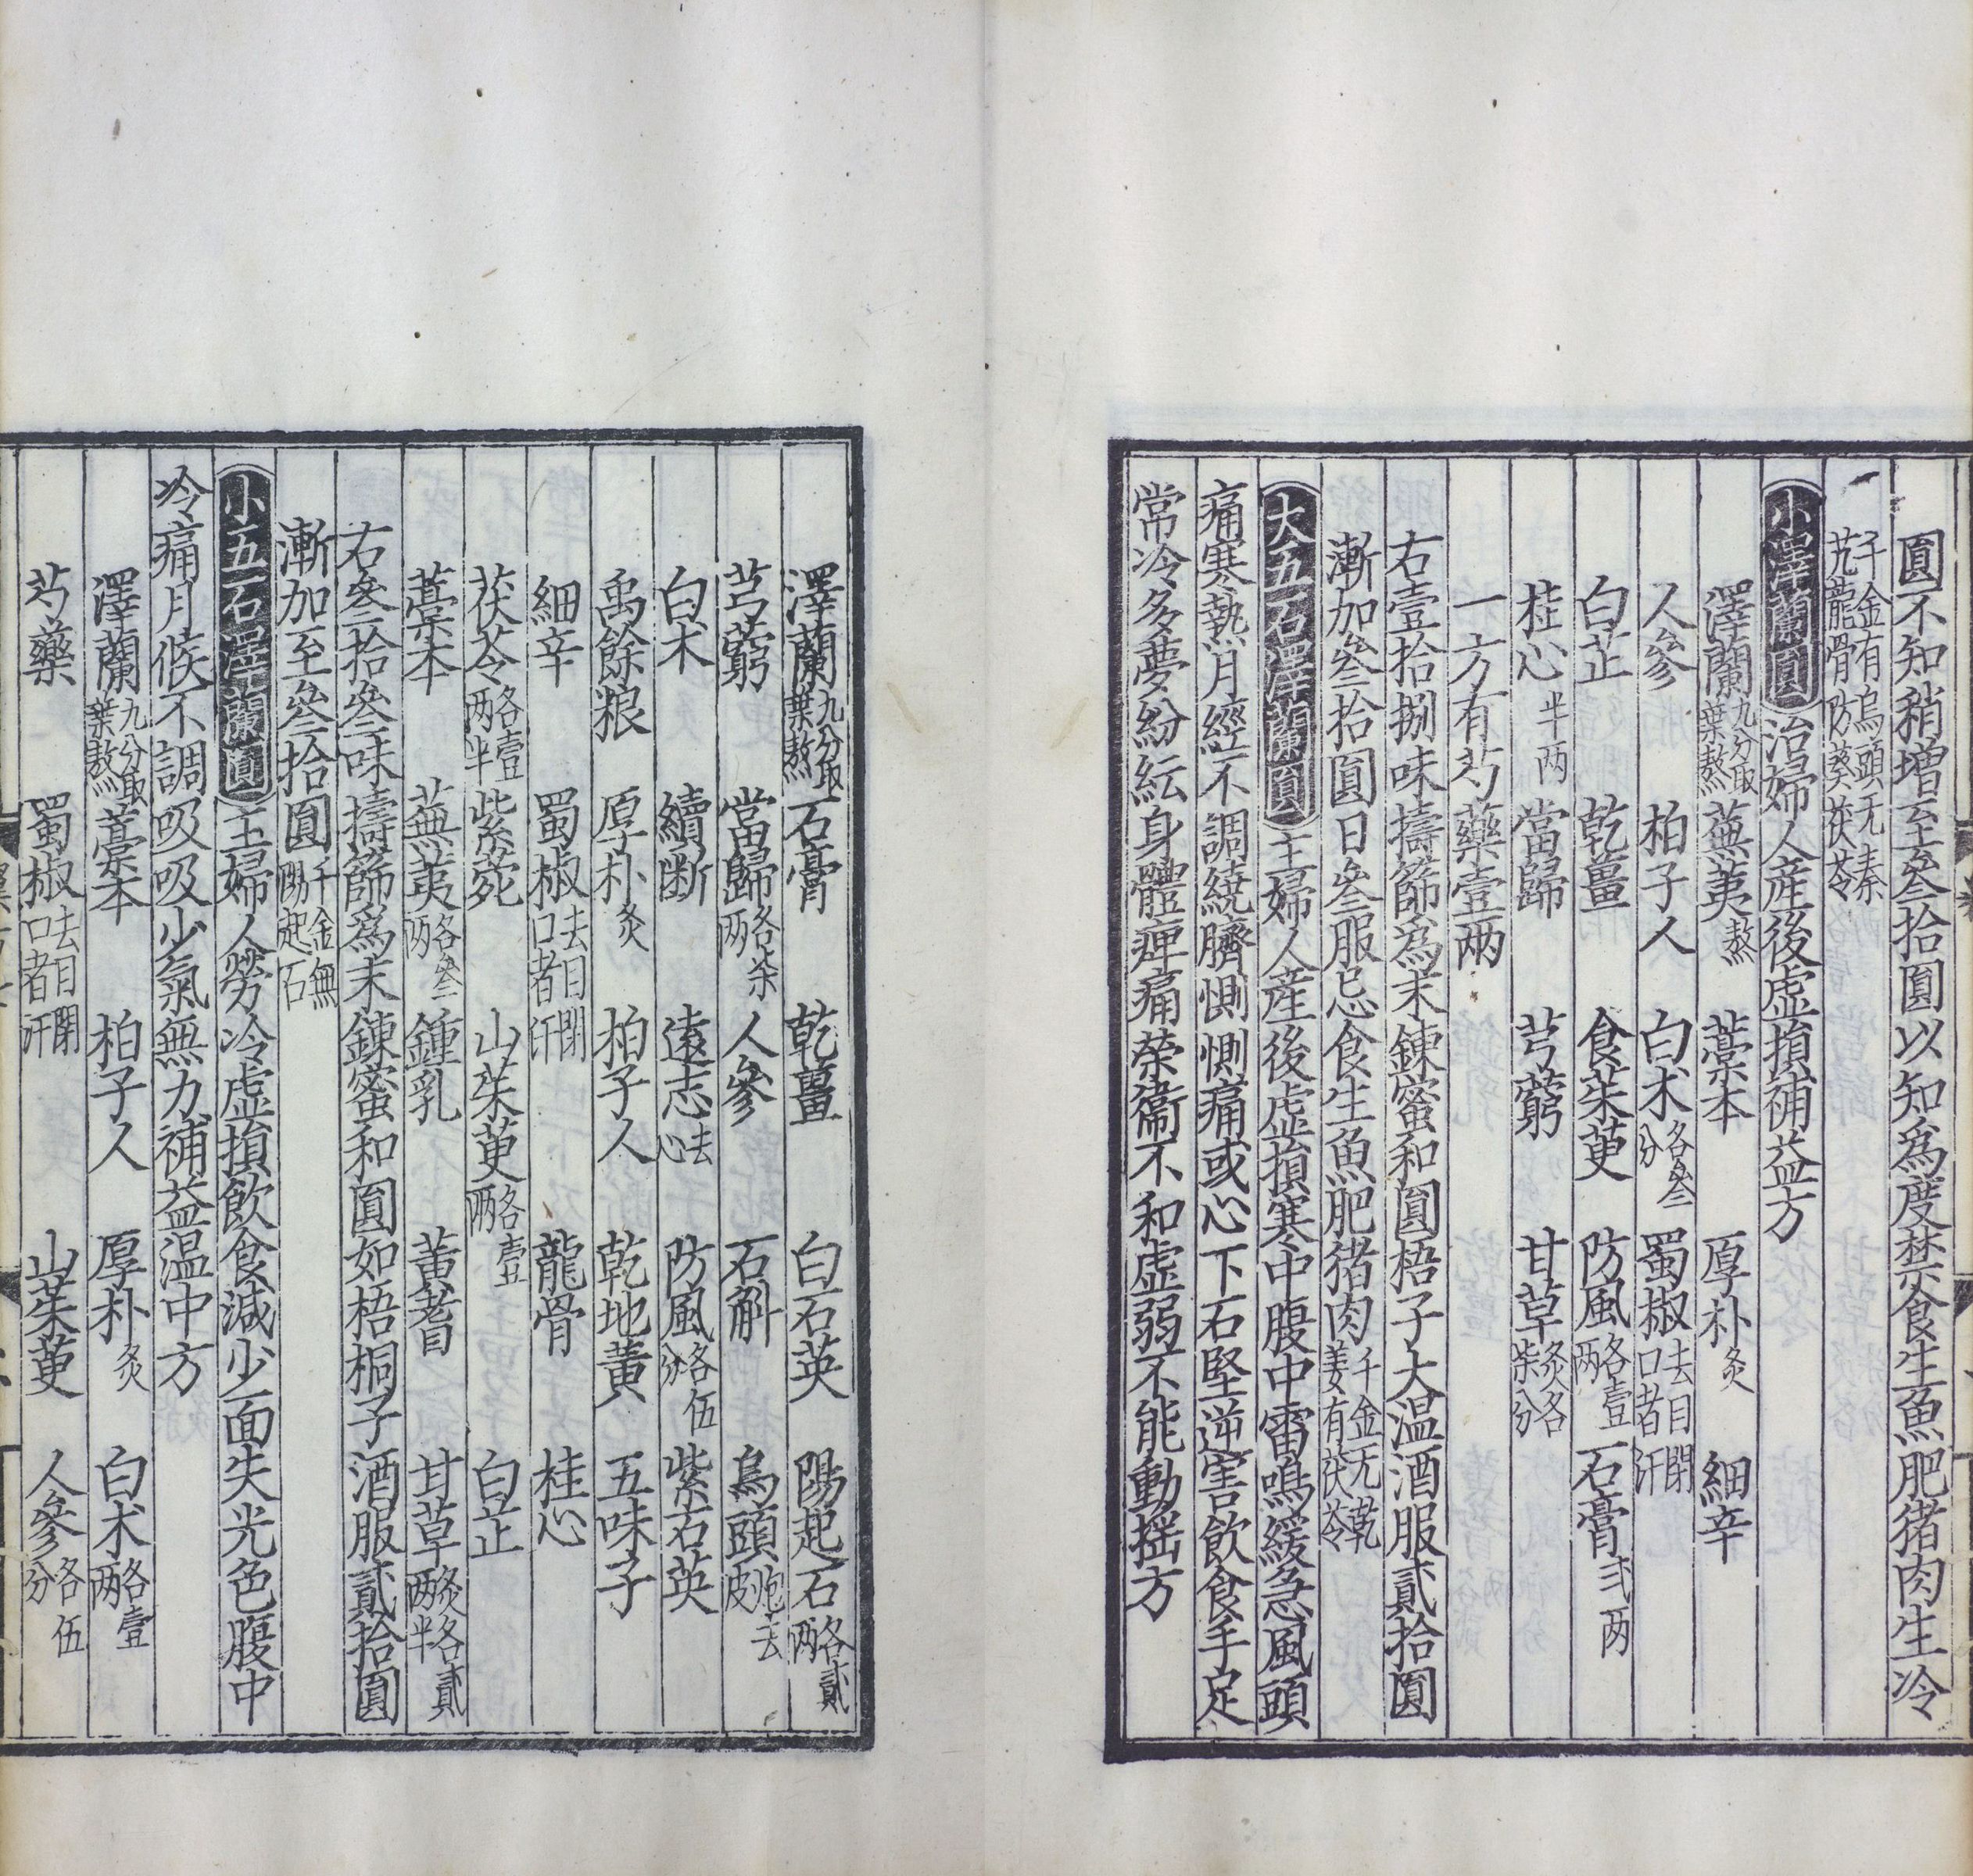 圓不知稍增至叄拾圓以知爲度禁食生魚肥猪肉生冷
千金有烏頭无秦
艽龍骨防葵茯苓
小澤蘭圓治婦人産後虛損補益方
澤蘭九分取葉熬 蕪荑熬 藁本 厚朴炙 細辛
人參 柏子人 白术各叄分 蜀椒去目閉口者汗
白芷 乾薑 食茱萸 防風各壹两 石膏弍两
桂心半两 當歸 芎藭 甘草炙各柒分
一方有芍藥壹两
右壹拾捌味擣篩爲末鍊蜜和圓梧子大温酒服貳拾圓
漸加叄拾圓日叄服忌食生魚肥猪肉千金无乾姜有茯苓
大五石澤蘭圓主婦人産後虛損寒中腹中雷鳴緩急風頭
痛寒熱月經不調繞臍惻惻痛或心下石堅逆害飲食手足
常冷多夢紛紜身體痺痛榮衞不和虛弱不能動揺方
澤蘭九分取葉熬 石膏 乾薑 白石英 陽起石各貳两
芎藭 當歸各柒两 人參 石斛 烏頭炮去皮
白术 續断 遠志去心 防風各伍分 紫石英
禹餘粮 厚朴炙 柏子人 乾地黄 五味子
細辛 蜀椒去目閉口者汗 龍骨 桂心
茯苓各壹两半 紫菀 山茱萸各壹两 白芷
藁本 蕪荑各叄两 鍾乳 黄耆 甘草炙各貳两半
右叄拾叄味擣篩爲末鍊蜜和圓如梧桐子酒服貳拾圓
漸加至叄拾圓千金無陽起石
小五石澤蘭圓主婦人勞冷虛損飲食減少面失光色腹中
冷痛月候不調吸吸少氣無力補益温中方
澤蘭九分取葉熬 藁本 柏子人 厚朴炙 白术各壹两
芍藥 蜀椒去目閉口者汗 山茱萸 人參各伍分